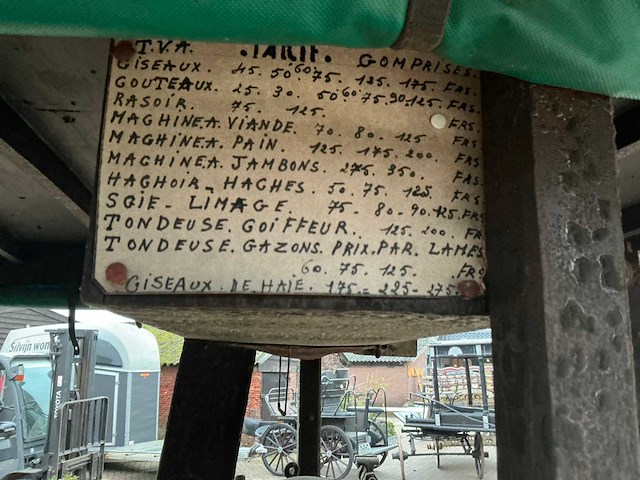 T.V.A. TARIF. GOMPRISES.
GISEAUX. 45. 50 60 75. 125. 175. FRS.
GOUTEAUX. 25. 30. 50 60 75. 90. 125. FRS.
RASOIR. 75. 125.
MACHINE.A.VIANDE. 70. 80. 125 FRS.
MAGHINEA. PAIN. 125. 175. 200. FRS
MACHINEA. JAMBONS. 275. 350. FRS
HAGHOIR - HACHES. 50. 75. 125. FRS
SGIE - LIMAGE. 75 - 80 - 90. 125. FRS
TONDEUSE. GOIFFEUR. 125. 200. FRS
TONDEUSE. GAZONS. PRIX. PAR. LAMES
60. 75. 125. FRS
GISEAUX. DE HAIE. 175 - 225 - 275.
Silvijn
TOYOTA